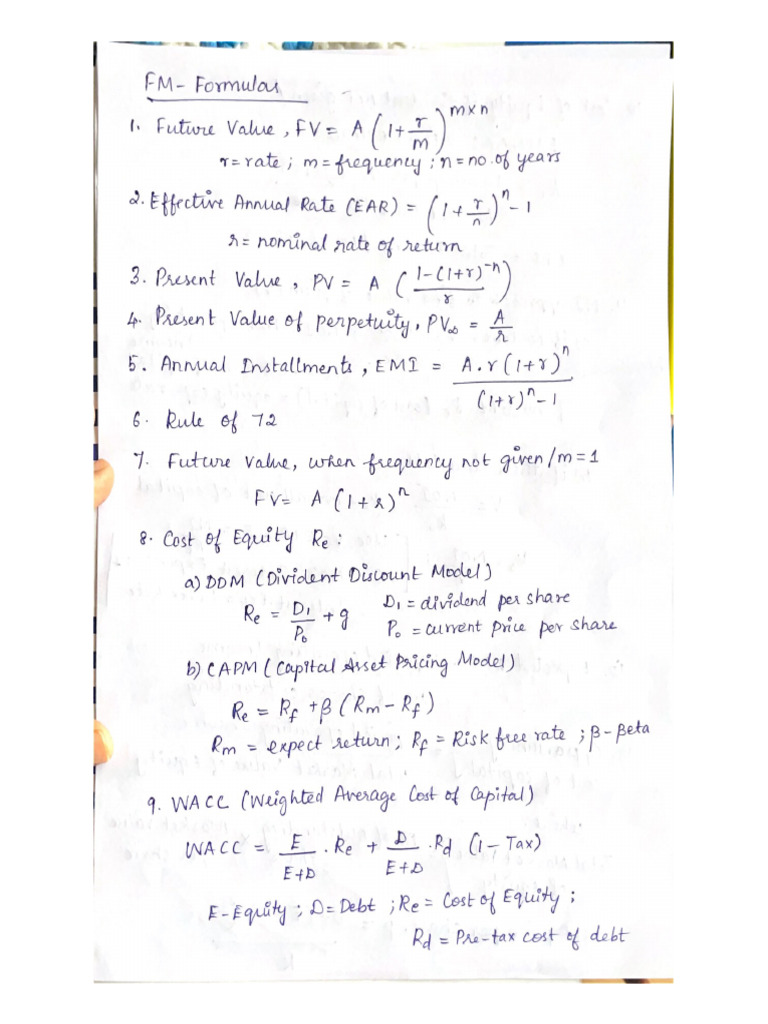 FM - Formulas
1. Future Value, FV = A (1 + r/m)^(m×n)
r = rate ; m = frequency ; n = no. of years
2. Effective Annual Rate (EAR) = (1 + r/n)^n - 1
r = nominal rate of return
3. Present Value, PV = A (1-(1+r)^-n / r)
4. Present Value of perpetuity, PV∞ = A/r
5. Annual Installments, EMI = A.r(1+r)^n / (1+r)^n - 1
6. Rule of 72
7. Future Value, when frequency not given / m = 1
FV = A (1+r)^n
8. Cost of Equity Re :
a) DDM (Divident Discount Model)
Re = D1/P0 + g D1 = dividend per share
P0 = current price per share
b) CAPM (Capital Asset Pricing Model)
Re = Rf + β (Rm - Rf)
Rm = expect return ; Rf = Risk free rate ; β - Beta
9. WACC (Weighted Average Cost of Capital)
WACC = E/E+D . Re + D/E+D . Rd (1 - Tax)
E - Equity ; D = Debt ; Re = Cost of Equity ;
Rd = Pre-tax cost of debt